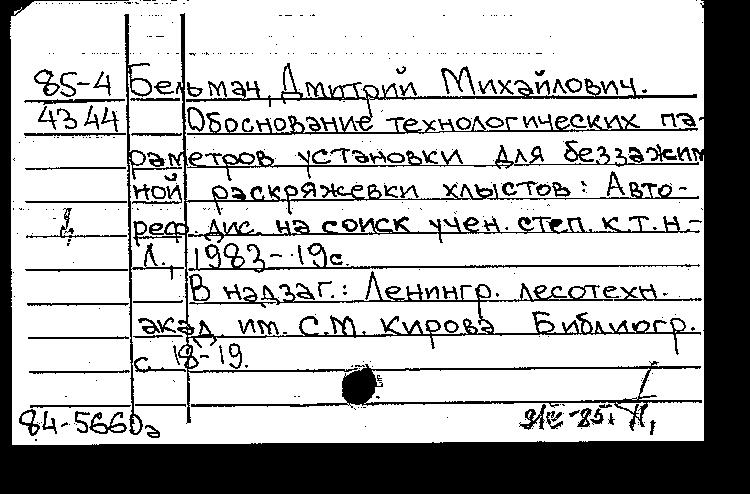 85-4 Бельман, Дмитрий Михайлович.
4344 Обоснование технологических па-
раметров установки для беззажим
ной раскряжевки хлыстов: Авто-
реф. дис. на соиск учен. степ. к.т.н.-
Л., 1983-19с.
В надзаг.: Ленингр. лесотехн.
акад им. С.М. Кирова Библиогр.
с. 18-19.
84-5660а